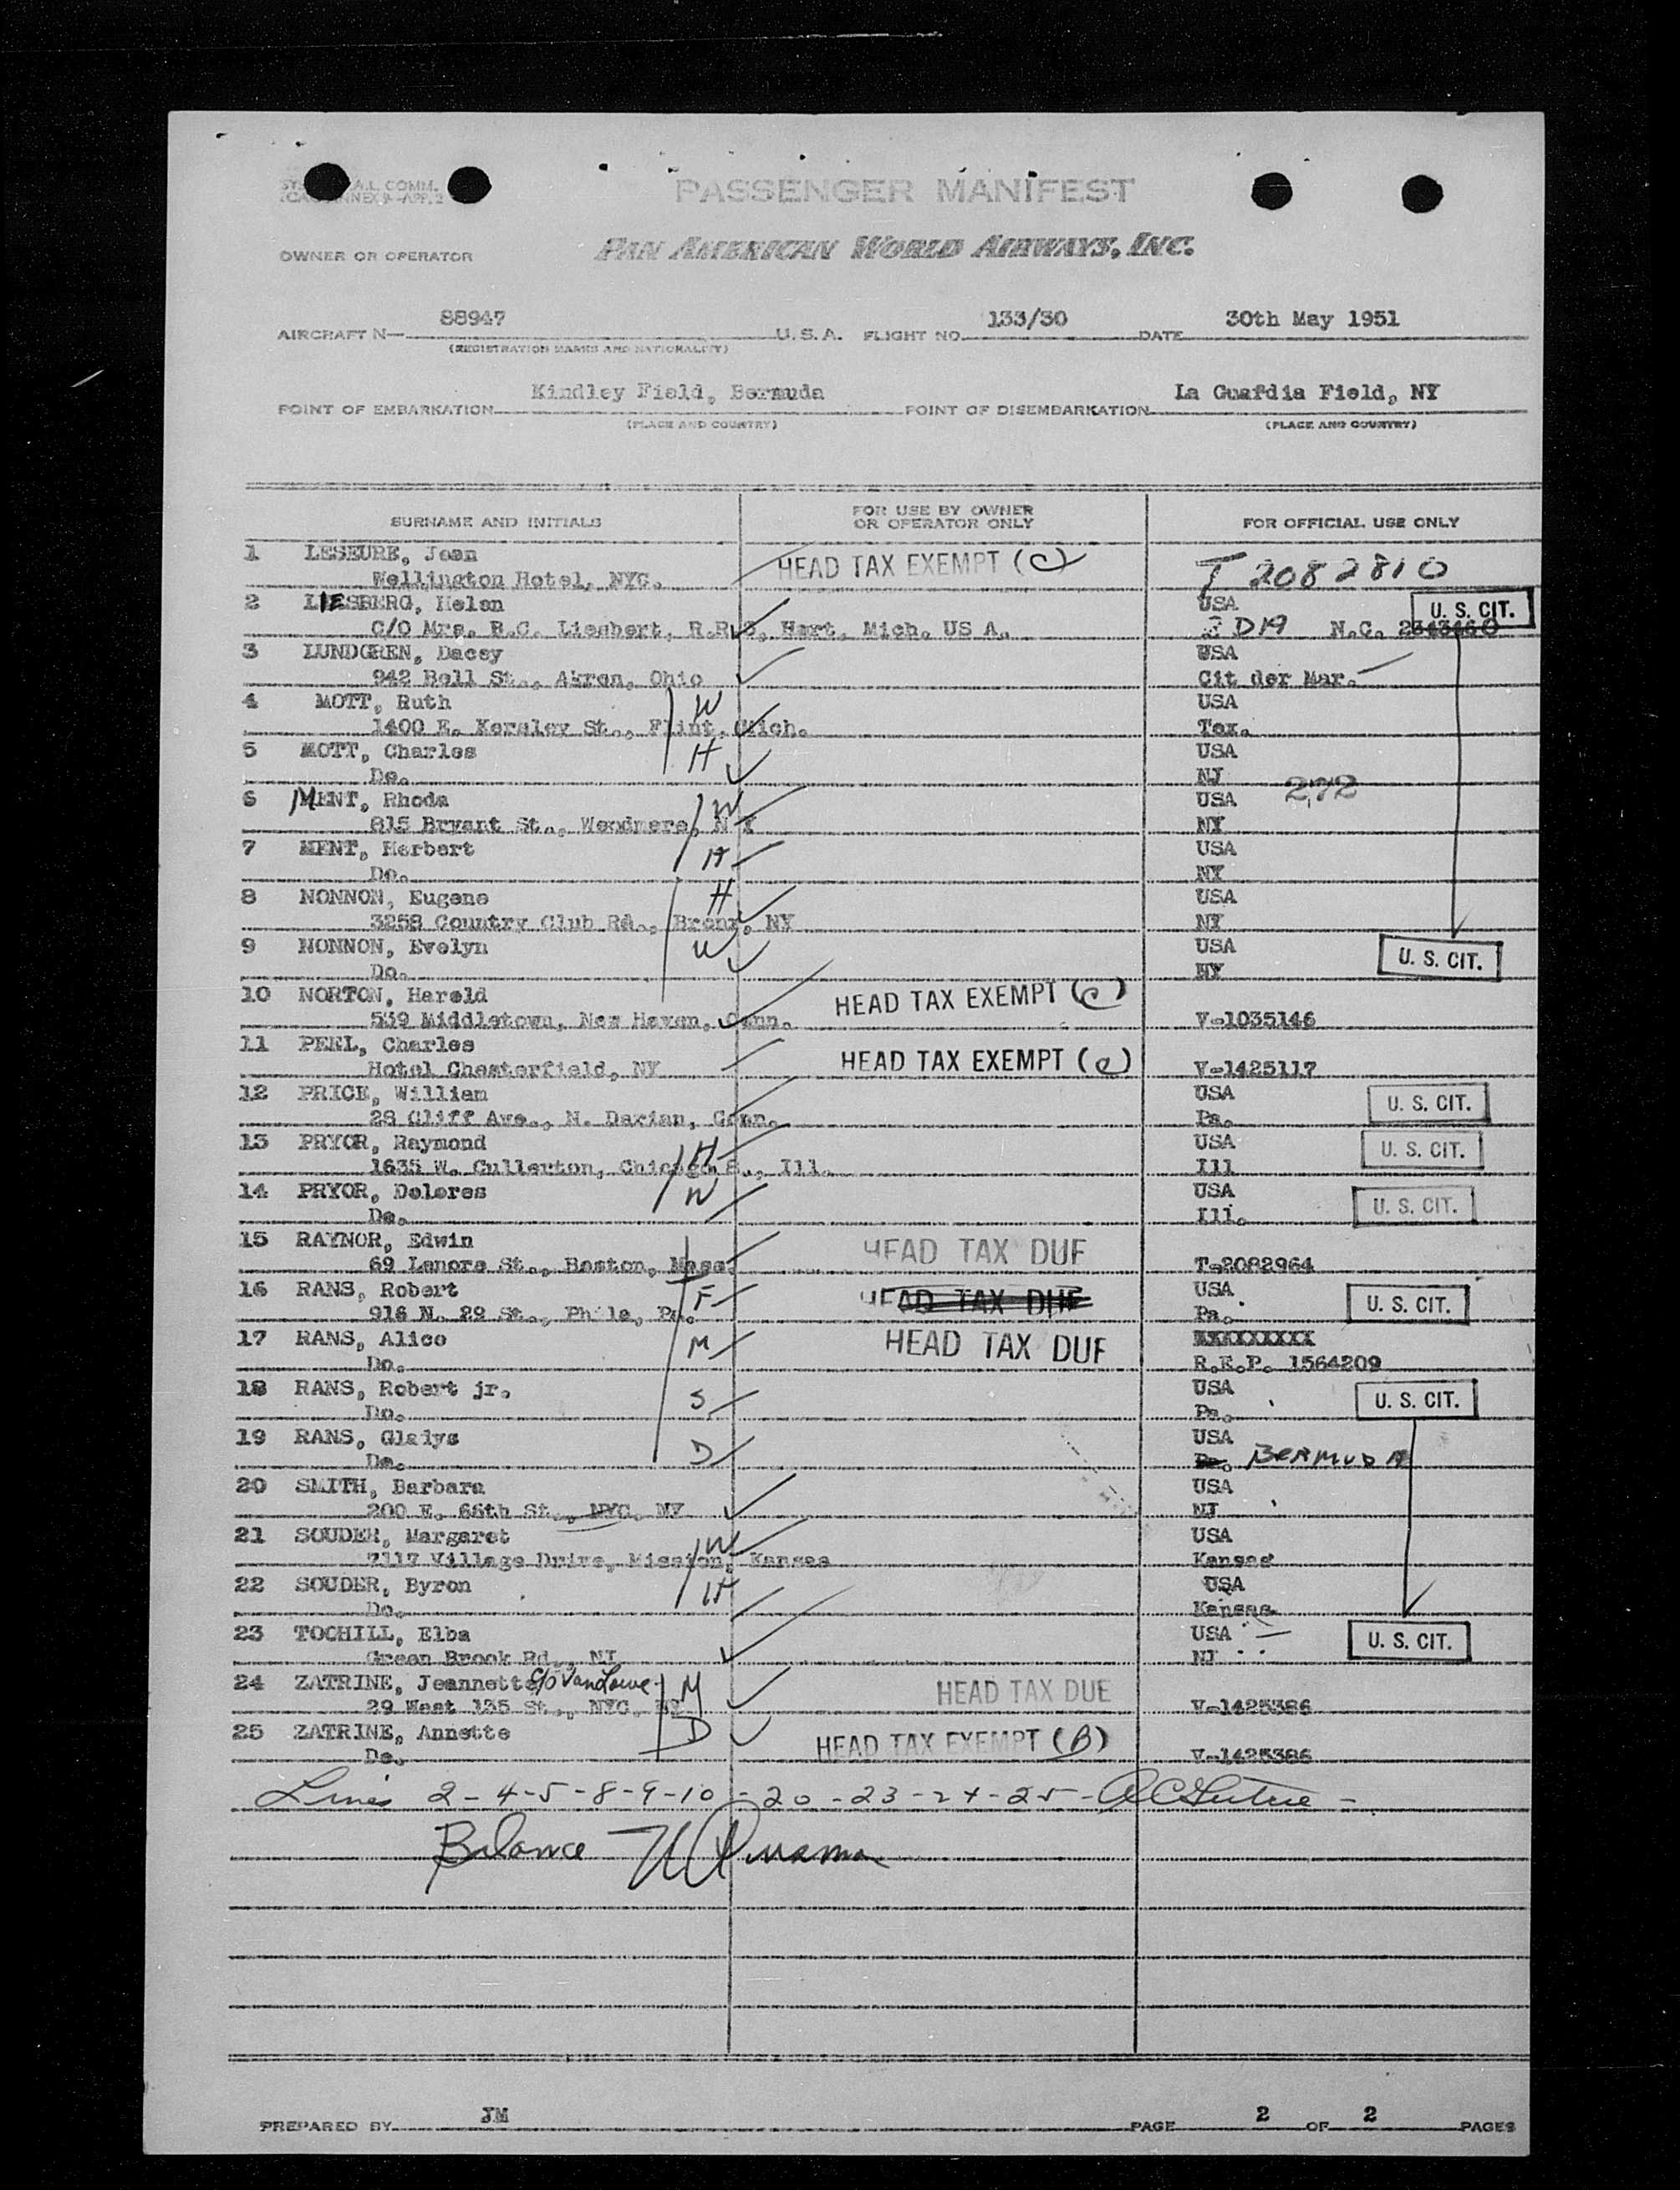 PASSENGER MANIFEST
OWNER OR OPERATOR PAN AMERICAN WORLD AIRWAYS, INC.
AIRCRAFT N— 88947 U.S.A. FLIGHT NO. 133/30 DATE 30th May 1951
(REGISTRATION MARKS AND NATIONALITY)
POINT OF EMBARKATION Kindley Field, Bermuda POINT OF DISEMBARKATION La Guardia Field, NY
(PLACE AND COUNTRY) (PLACE AND COUNTRY)
SURNAME AND INITIALS FOR USE BY OWNER OR OPERATOR ONLY FOR OFFICIAL USE ONLY
1 LESEURE, Jean HEAD TAX EXEMPT (C)
Wellington Hotel, NYC. T 2082810
2 LIESBERG, Helen USA U. S. CIT.
C/O Mrs. B.C. Liesbert, R.R. 3, Hart, Mich. US A. N.C. 2343460
3 LUNDGREN, Dacey USA
942 Bell St., Akron, Ohio Cit der Mar.
4 MOTT, Ruth W USA
1400 E. Kersley St., Flint, Mich. Tex.
5 MOTT, Charles H USA
Do. NJ 272
6 MENT, Rhoda W USA
815 Bryant St., Woodmere, N Y NY
7 MENT, Herbert H USA
Do. NY
8 NONNON, Eugene H USA
3258 Country Club Rd., Bronx, NY NY
9 NONNON, Evelyn W USA U. S. CIT.
Do. NY
10 NORTON, Harold HEAD TAX EXEMPT (C)
539 Middletown, New Haven, Conn. V-1035146
11 PEEL, Charles HEAD TAX EXEMPT (C)
Hotel Chesterfield, NY V-1425117
12 PRICE, William USA U. S. CIT.
28 Cliff Ave., N. Darian, Conn. Pa.
13 PRYOR, Raymond H USA U. S. CIT.
1635 W. Cullerton, Chicago 8., Ill. Ill
14 PRYOR, Delores W USA U. S. CIT.
Do. Ill.
15 RAYNOR, Edwin HEAD TAX DUE
69 Lenore St., Boston, Mass. T-2082964
16 RANS, Robert F HEAD TAX DUE USA U. S. CIT.
916 N. 29 St., Phila, Pa. Pa.
17 RANS, Alice M HEAD TAX DUE XXXXXXXXX
Do. R.E.P. 1564209
18 RANS, Robert jr. S USA U. S. CIT.
Do. Pa.
19 RANS, Gladys D USA
Do. Pa. BERMUDA
20 SMITH, Barbara USA
200 E. 66th St., NYC, NY NJ
21 SOUDER, Margaret W USA
7117 Village Drive, Mission, Kansas Kansas
22 SOUDER, Byron H USA
Do. Kansas
23 TOCHILL, Elba USA U. S. CIT.
Green Brook Rd., NJ NJ
24 ZATRINE, Jeannette c/o VanLowe M HEAD TAX DUE
29 West 135 St., NYC, NY V-1425386
25 ZATRINE, Annette D HEAD TAX EXEMPT (B)
Do. V-1425386
Lines 2-4-5-8-9-10-20-23-24-25-
Balance
PREPARED BY JM PAGE 2 OF 2 PAGES